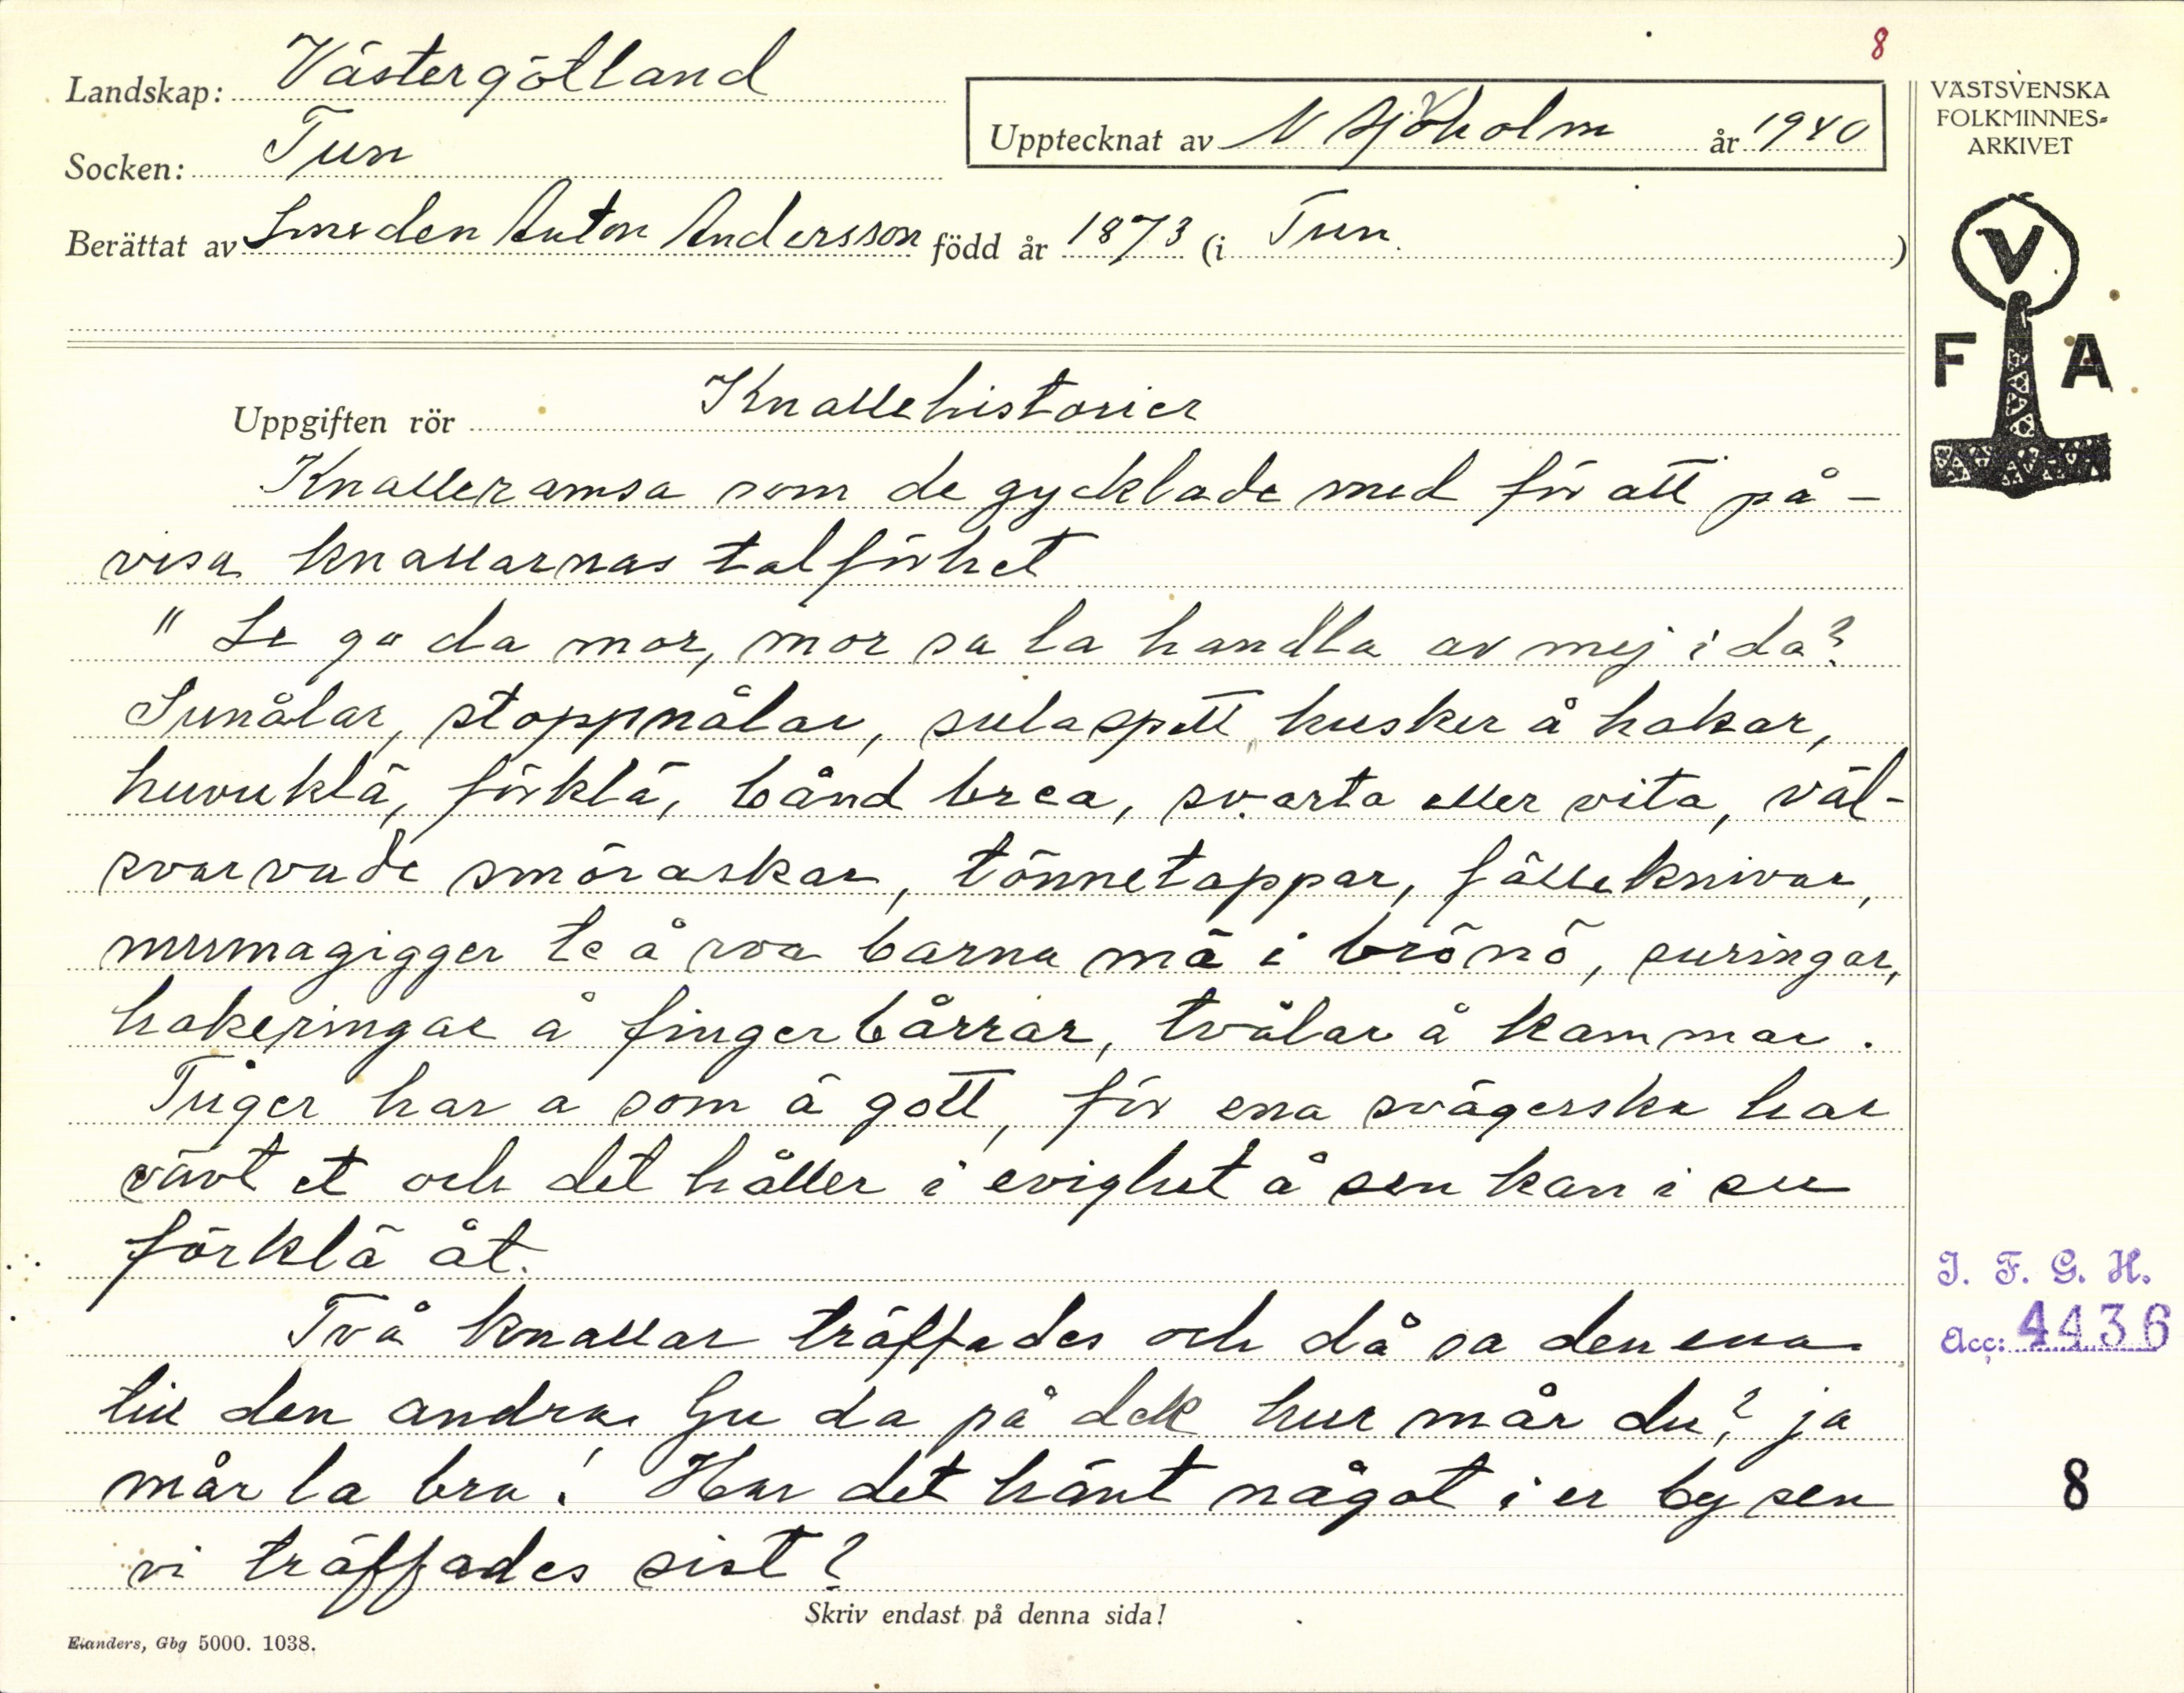 8
Landskap: Västergötland
Upptecknat av N Sjöholm år 1940
Socken: Tun
Berättat av Smeden Anton Andersson född år 1873 (i Tun. )
VÄSTSVENSKA
FOLKMINNES-
ARKIVET
V
F A
Uppgiften rör Knallehistorier
Knalleramsa som de gycklade med för att på-
visa knallarnas talförhet
" Se go da mor, mor sa la handla av mej i da?
Sunålar, stoppnålar, sulaspett husker å hakar,
huvuklä, förklä, bånd brea, svarta eller vita, väl-
svarvade smöraskar, tönnetappar, fälleknivar,
mumagigger te å roa barna mä i brönö, suringar,
hakeringar å fingerbårrar, tvålar å kammar.
Tüger har a som ä gott, för ena svägerska har
vävt et och det håller i evighet å sen kan i su
förklä åt.
Två knallar träffades och då sa den ena
till den andra Gu da på dek hur mår du? ja
mår la bra! Har det hänt något i er by sen
vi träffades sist?
I. F. G. H.
Acc: 4436
8
Skriv endast på denna sida!
Elanders, Gbg 5000. 1038.